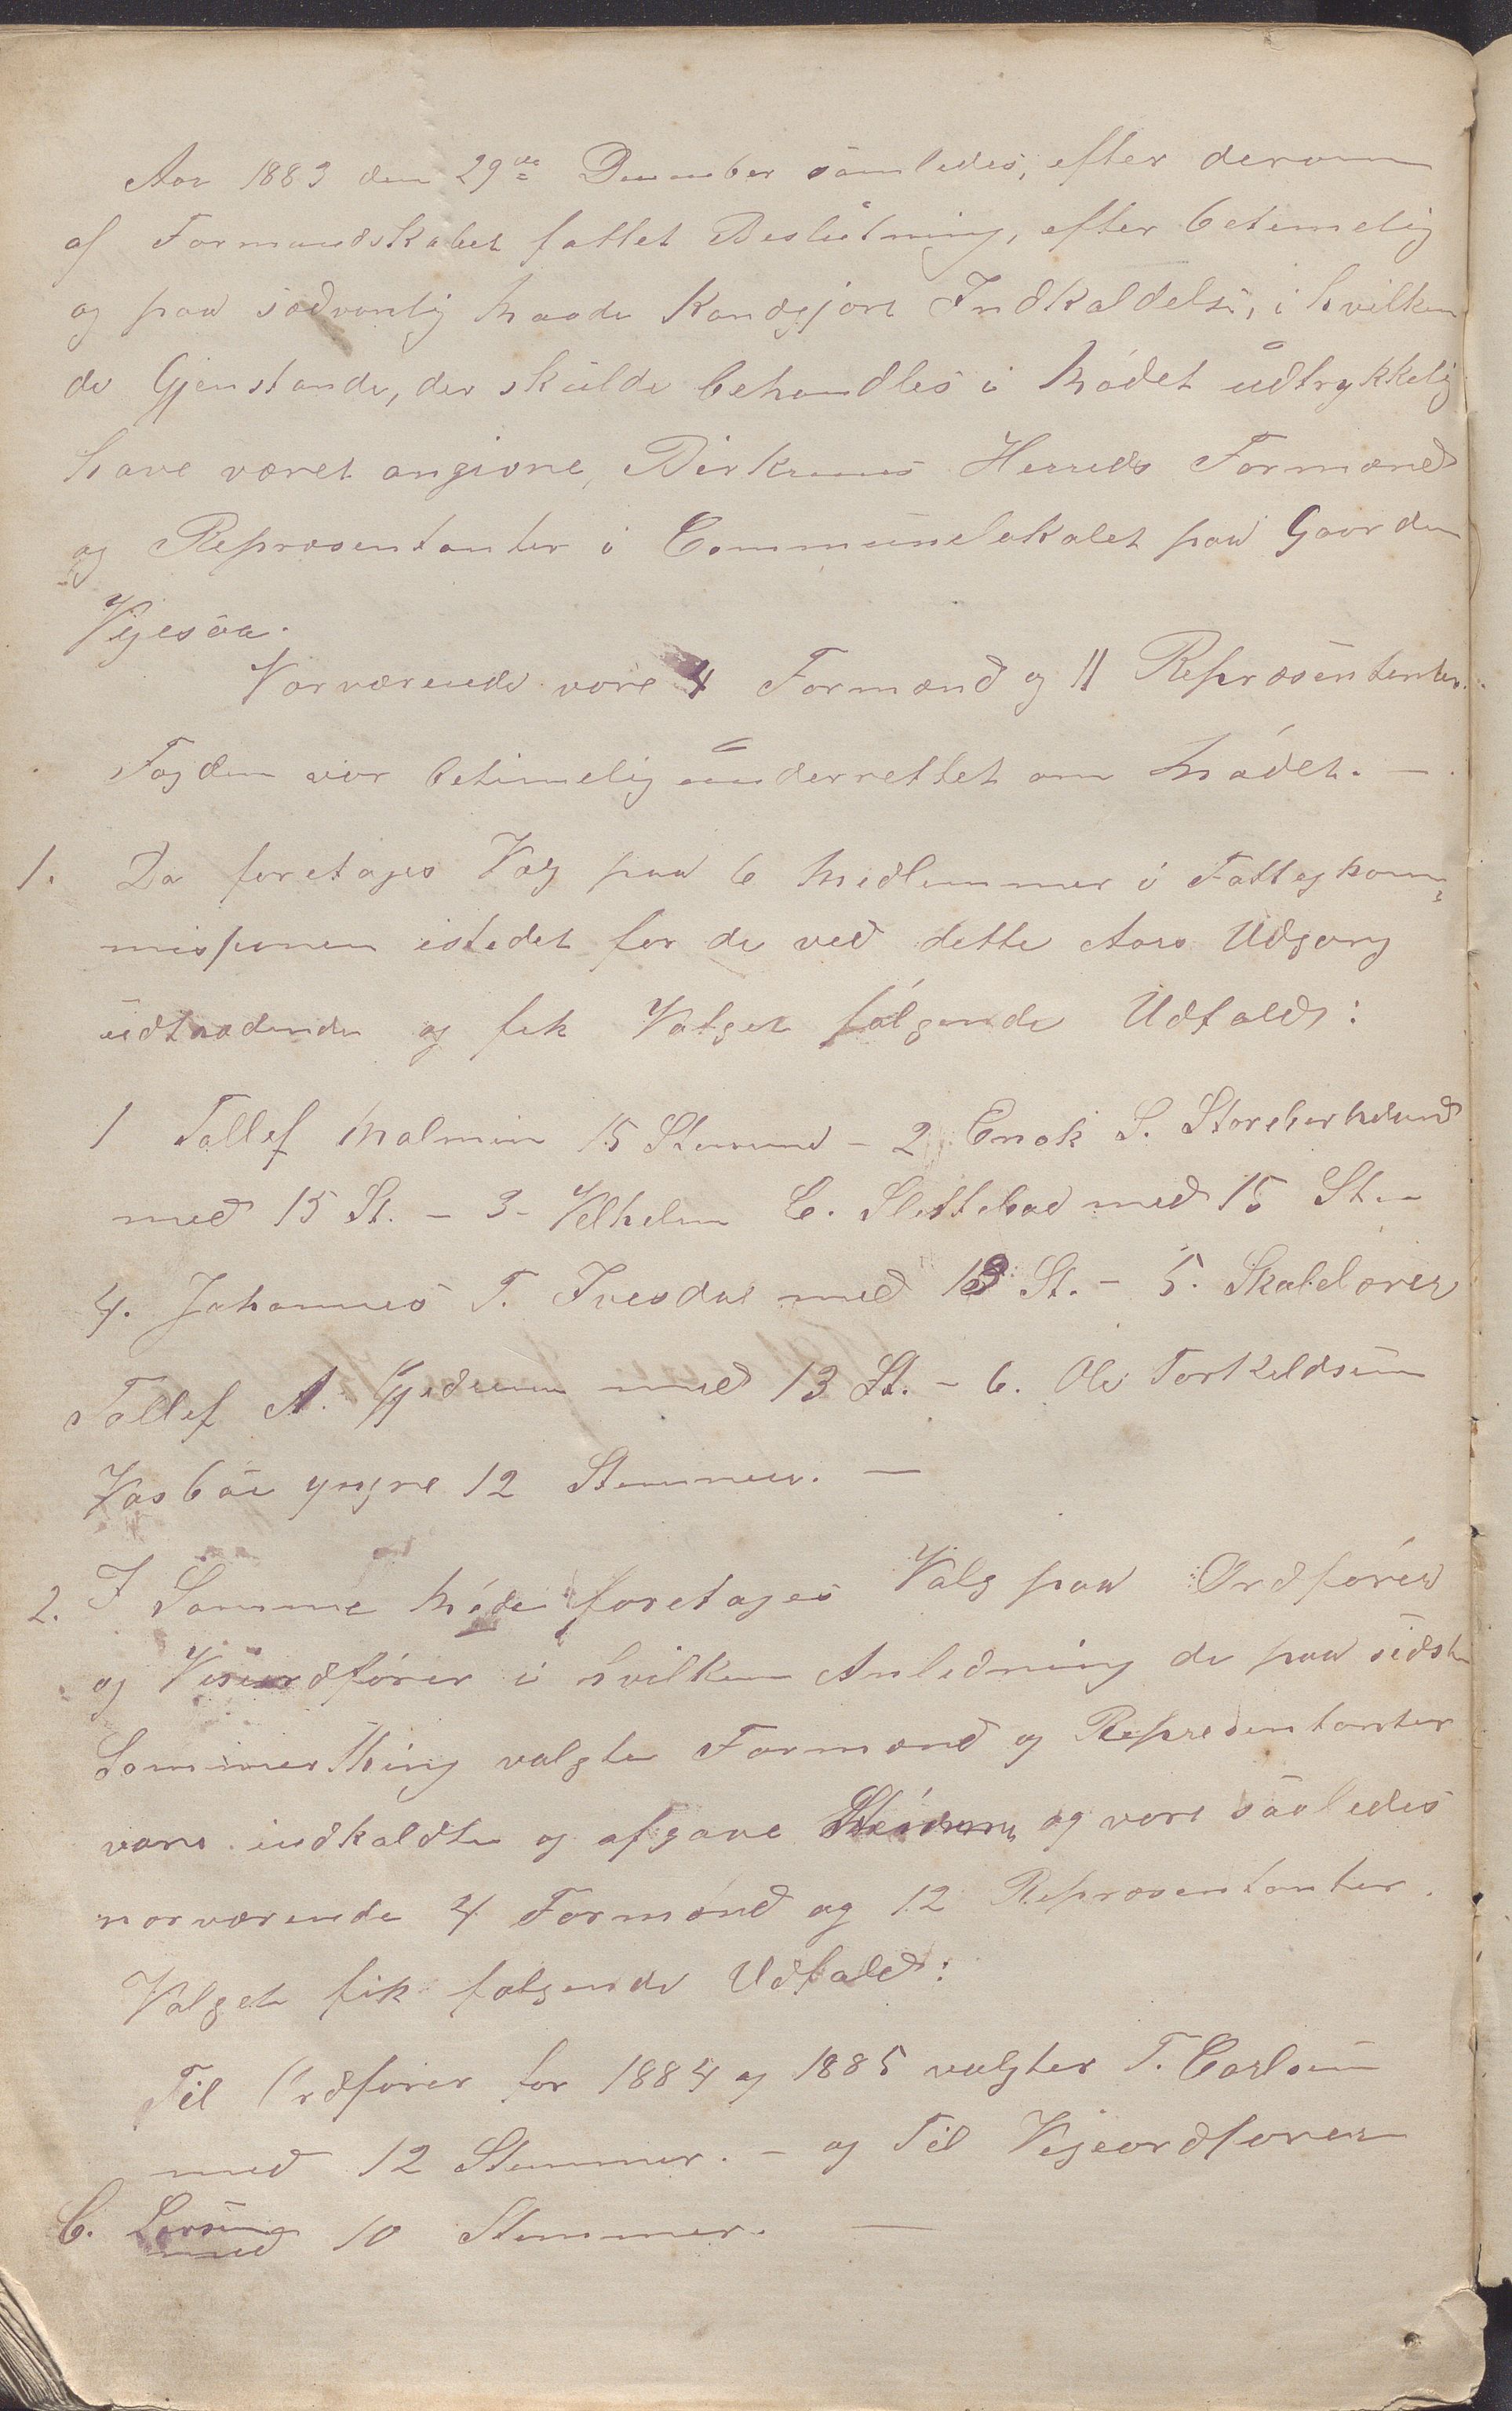 Aar 1883 den 29de December samledes, efter derom
af Formandskabet fattet Beslutning, efter betimelig
og paa sædvanlig Maade Kundgjort Indkaldelse, i hvilken
de Gjenstande, der skulde behandles i Mødet udtrykkelig
have været angivne, Birkrems Herreds Formænd
og Repræsentanter i Communelokalet paa Gaarden
Vigesaa.
Nærværende vare 4 Formænd og 11 Repræsentanter.
Fogden var betimelig underrettet om Mødet. —
1. Da foretages Valg paa 6 Medlemmer i Fattigkom-
missionen istedet for de ved dette Aars Udgang
udtrædende og fik Valget følgende Udfald:
1 Tollef Malmin 15 Stemmer – 2 Enok S. Storeberhelund
med 15 St. – 3 – Velhelm C. Slettebøe med 15 St. –
4. Johannes T. Ivesdal med 13 St. – 5. Skafelorer
Tollef A. Gjedrem med 13 St. – 6. Ole Torkeldsen
Vasbøe yngre 12 Stemmer. —
2. I Samme Møde foretages Valg paa Ordfører
og Viseordfører i hvilken Anledning de paa sidste
Sommerthing valgte Formænd og Repræsentanter
vare indkaldte og afgave Stemme og vare saaledes
nærværende 4 Formænd og 12 Repræsentanter.
Valget fik følgende Udfald:
Til Ordfører for 1884 og 1885 valgtes T. Carlsen
med 12 Stemmer. – og Til Viseordfører
C. Larsen med 10 Stemmer. —